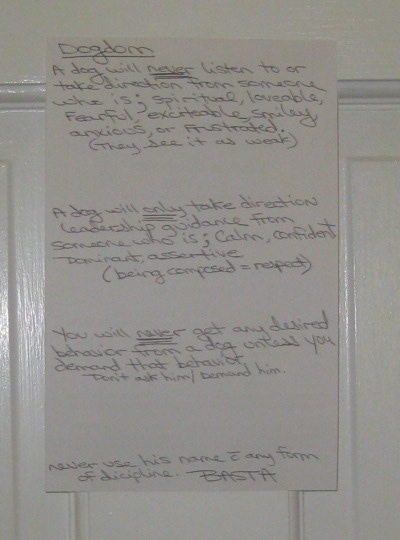 Dogdom
A dog will never listen to or
take direction from someone
who is; spiritual, loveable,
Fearful, exciteable, smiley
anxious, or frustrated.
(They see it as weak)
A dog will only take direction
leadership guidance from
someone who is; Calm, confident
Dominant, assertive
(being composed = respect)
You will never get any desired
behavior from a dog unless you
demand that behavior
Don't ask him/Demand him.
never use his name c̄ any form
of dicipline. BASTA